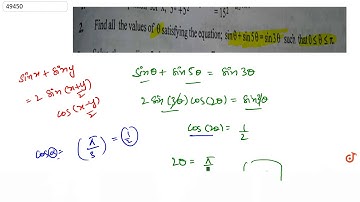 49450
2. Find all the values of θ satisfying the equation; sinθ + sin5θ = sin3θ such that 0 ≤ θ ≤ π.
sinx + siny
= 2 sin (x+y)/2
cos (x-y)/2
cos(α) = (π/3) = (1/2)
sinθ + sin5θ = sin3θ
2 sin(3θ) cos(2θ) = sin3θ
cos(2θ) = 1/2
2θ = π